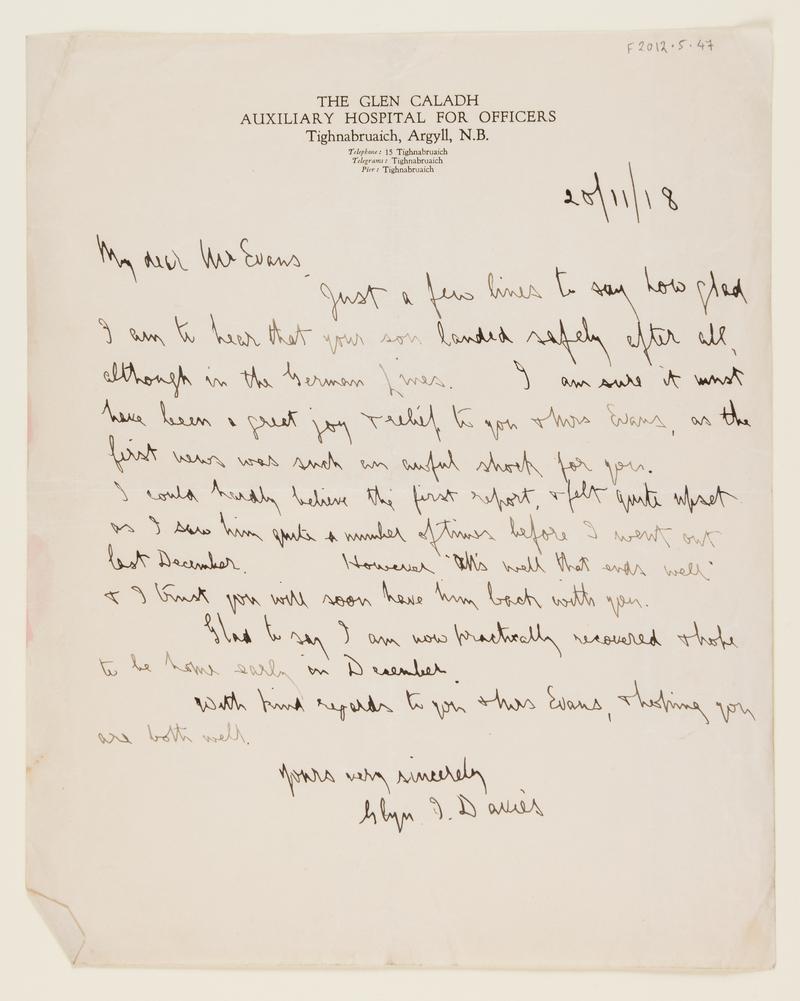 F2012.5.47
THE GLEN CALADH
AUXILIARY HOSPITAL FOR OFFICERS
Tighnabruaich, Argyll, N.B.
Telephone: 15 Tighnabruaich
Telegrams: Tighnabruaich
Pier: Tighnabruaich
20/11/18
My dear Mr Evans
Just a few lines to say how glad
I am to hear that your son landed safely after all,
although in the German lines. I am sure it must
have been a great joy & relief to you & Mrs Evans, as the
first news was such an awful shock for you.
I could hardly believe the first report, & felt quite upset
as I saw him quite a number of times before I went out
last December. However "All's well that ends well"
& I trust you will soon have him back with you.
Glad to say I am now practically recovered & hope
to be home early in December.
With kind regards to you & Mrs Evans, & hoping you
are both well.
Yours very sincerely
Glyn I. Davies